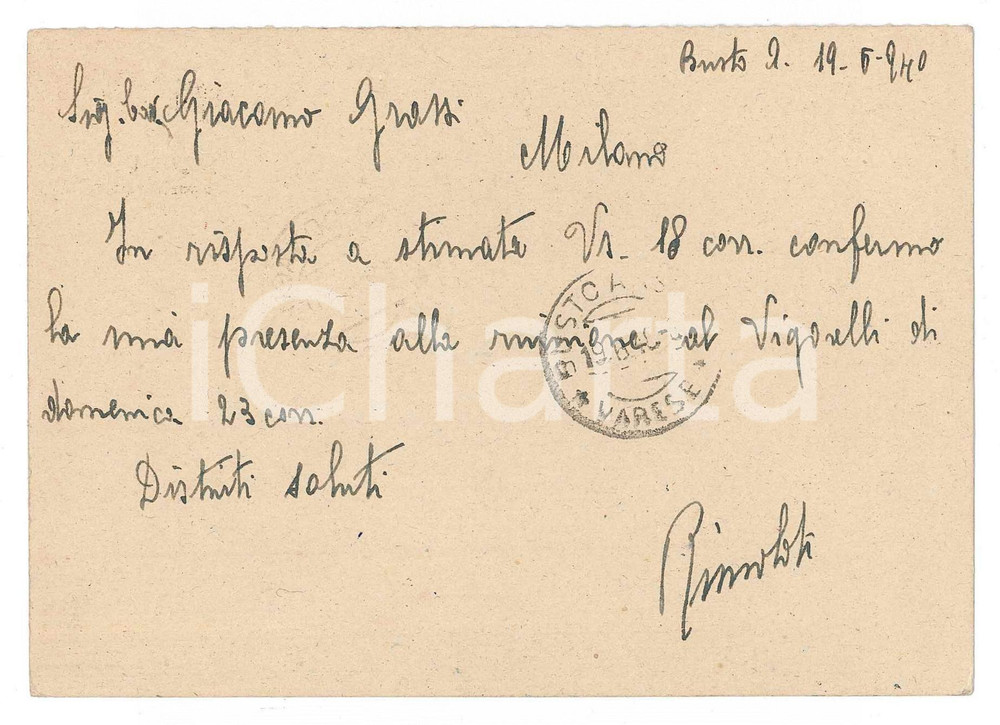 Busto A. 19-6-940
Sig. Cav. Giacomo Grassi
Milano
In risposta a stimata Vs. 18 corr. confermo
la mia presenza alla riunione al Vigorelli di
domenica 23 corr.
Distinti saluti
BUSTO ARS
19.6.40
* VARESE *
iCharta